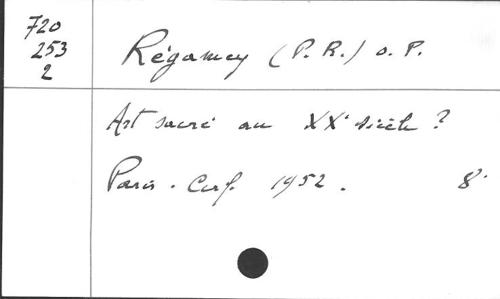 720
253
2
Régamey (P. R.) o. P.
Art sacré au XXe siècle ?
Paris. Cerf. 1952. 8°